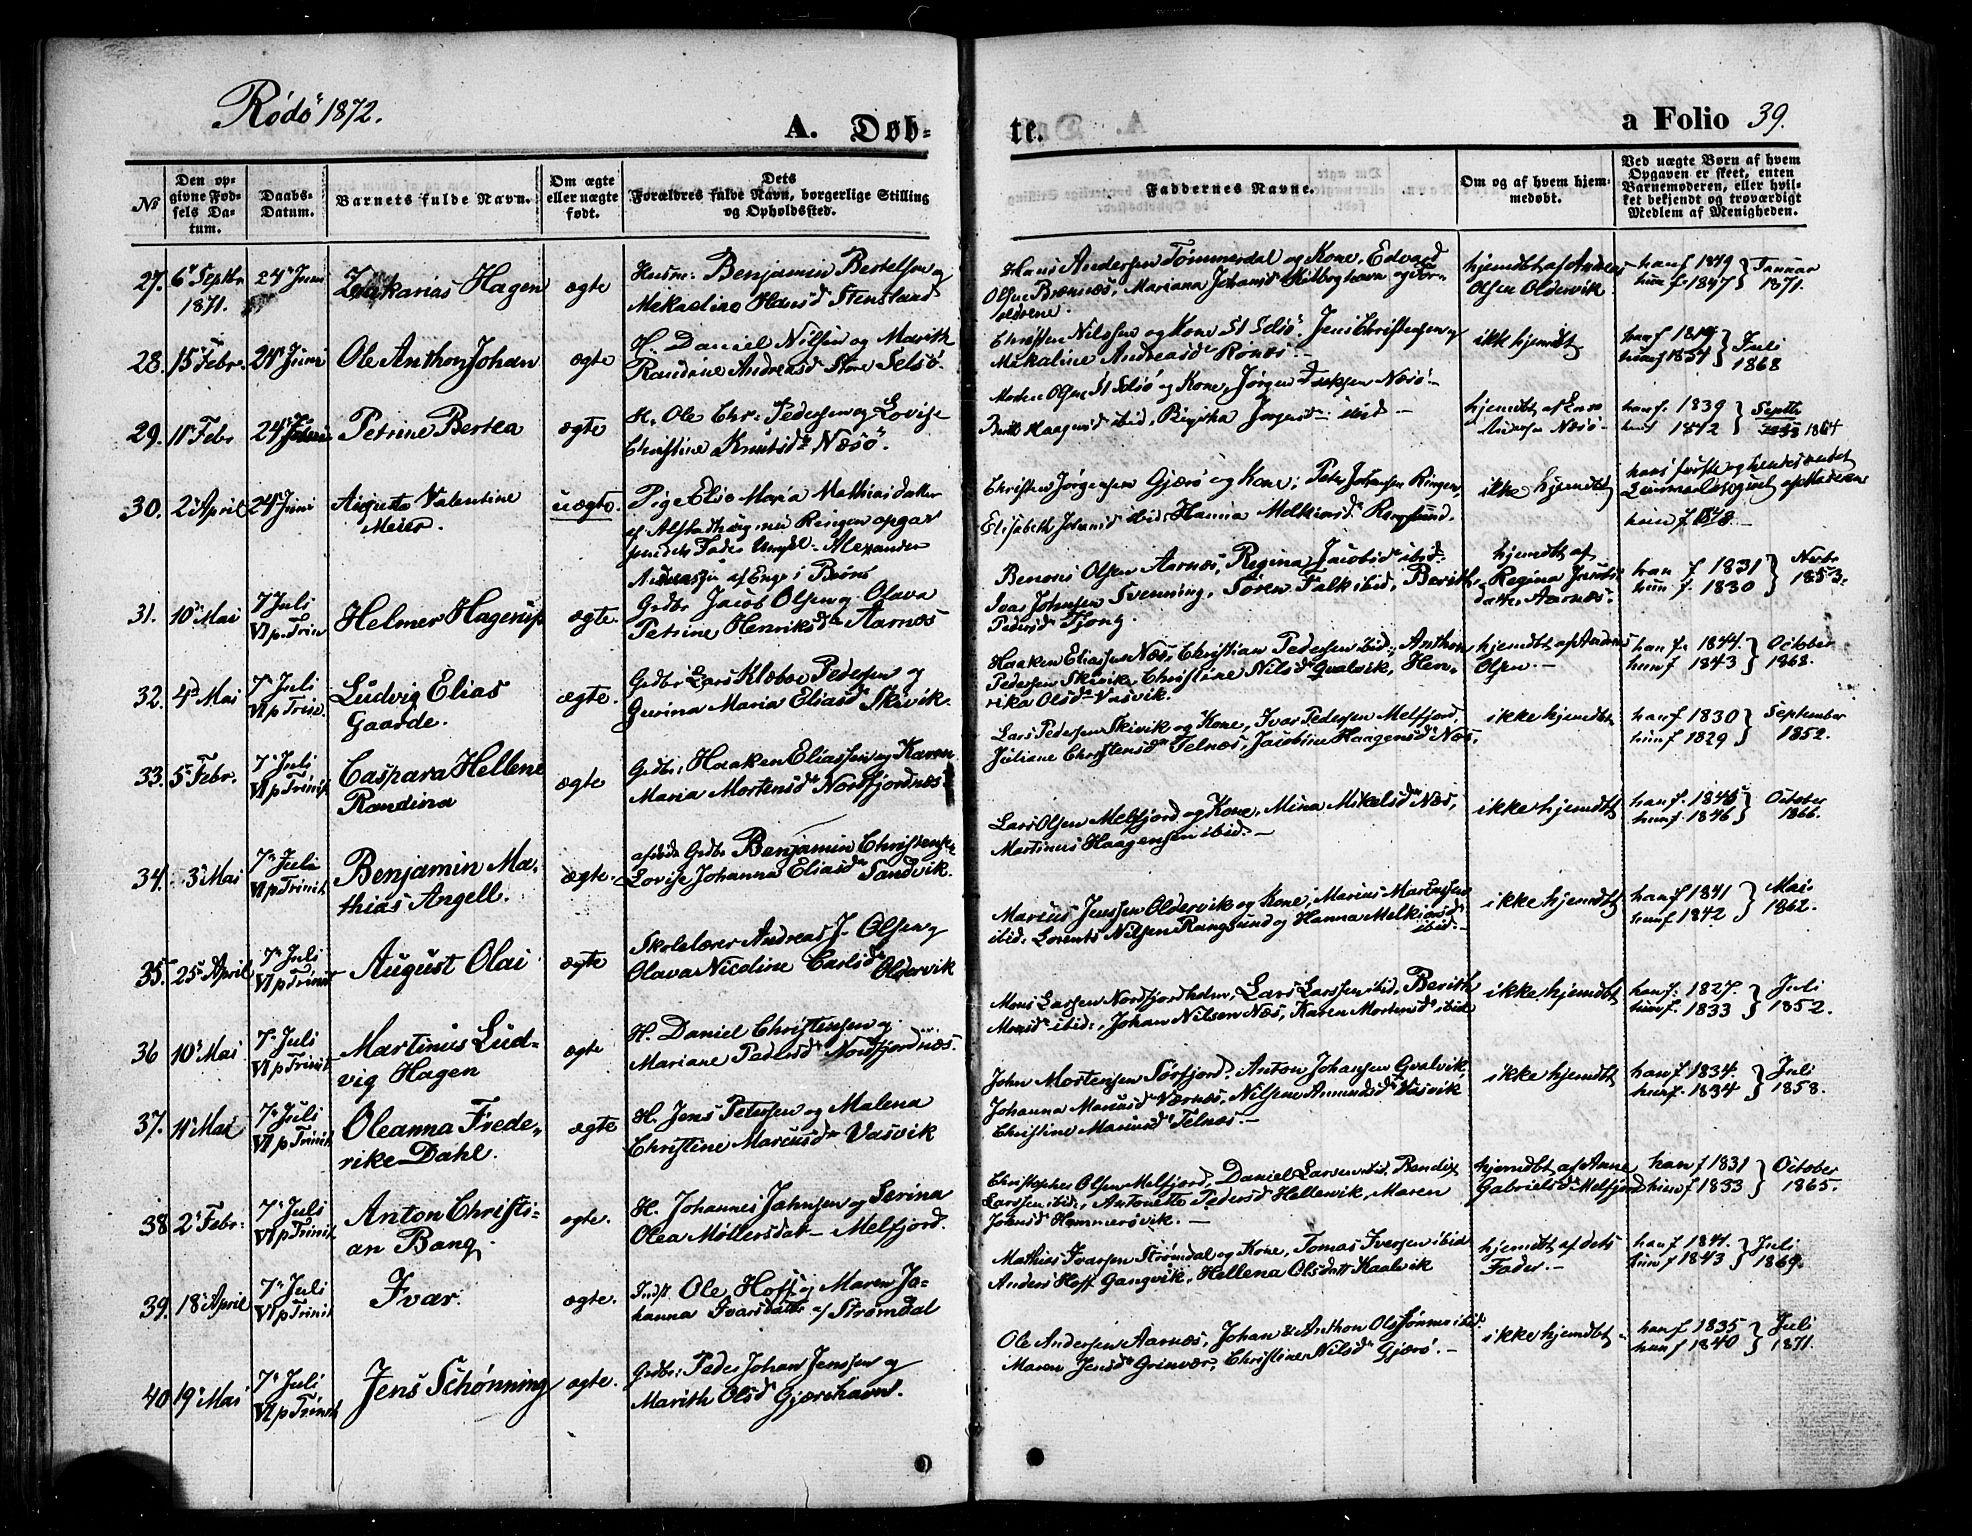 Rödö 1872.
A. Døb-
te.
a Folio 39.
No
Den op-
givne Fød-
sels Da-
tum.
Daabs-
Datum.
Barnets fulde Navn.
Om ægte
eller uægte
født.
Dets
Forældres fulde Navn, borgerlige Stilling
og Opholdssted.
Faddernes Navne.
Om og af hvem hjem-
medøbt.
Ved uægte Børn af hvem
Opgaven er skeet, enten
Barnemoderen, eller hvil-
ket bekjendt og troværdigt
Medlem af Menigheden.
27. 6 Septbr 24 Juni Zakarias Hagen ægte
1871.
Husm: Benjamin Bertelsen og
Mikaeline Hansd Stensland
Hans Andersen Tømmerdal og Kone, Edvard
Olsen Brænnæs, Mariana Johansd Hilberghavn og For-
ældrene.
hjemdbt af Anders
Olsen Oldervik
han f 1849
hun f. 1847
Januar
1871.
28. 15 Febr. 24 Juni Ole Anthon Johan ægte
H. Daniel Nilsen og Marith
Randine Andreasd Store Selsö.
Christen Nilssen og Kone St Selsö. Jens Christensen og
Mikaline Andreasd Rönæs.
ikke hjemdbt
Juli
1868
29. 11 Febr 24 Juni Petrine Bertea ægte
H. Ole Chr. Pedersen og Lovise
Christine Knutsd Næsö.
Morten Olsen St Selsö og Kone, Jørgen Næsö.
Jørgensd ibid
hjemdbt af
Næsö
han f. 1839
hun f 1842
Septb
1864
30. 2 April 24 Juni Augusta Valentine uægte.
Meier.
Pige Elie Maria Mathiasdatter
af Alstadhaug, nu Ringen opgav
Fader Ungkl. Alexander
Andreassen af Enge i Brøns
Christen Jørgensen Gjærö og Kone; Peter Johansen Ringen,
Elisabeth Johansd ibid, Hanna Melkiorsd Rangsund.
ikke hjemdbt
hans første og hendes andet
Leiermaal opgivet af Moderen
hun f 1848.
31. 10 Mai 7 Juli Helmer Hagerup ægte.
VI p. Trin
Grdbr Jacob Olsen og Olava
Petrine Henriksd Aarnæs
Benoni Olsen Aarnæs, Regina Jacobsd ibid.
Ivar Johnsen Svenning, Sören Falk ibid, Berith
Pedersd Tjong.
hjemdbt af
Regina Jacobs-
datter Aarnæs.
han f 1831
hun f. 1830
Novbr
1853.
32. 4 Mai 7 Juli Ludvig Elias ægte.
VI p Trin. Gaarde.
Grdbr Lars Klæboe Pedersen og
Gurina Maria Eliasd Skivik.
Haaken Eliassen Næs, Christian Pedersen ibid, Anthon
Pedersen Skivik, Christine Nilsd Gvalvik, Hen-
rika Olsd Vasvik.
hjemdbt af Andreas
Olsen.
han f. 1844.
hun f 1843
October
1868.
33. 5 Febr. 7 Juli Caspara Hellene ægte
VI p Trinit Randina
Grdbr: Haaken Eliassen og Karen
Maria Mortensd Nordfjordnæs
Lars Pedersen Skivik og Kone, Ivar Pedersen Melfjord,
Juliane Christensd Telnæs, Jacobine Haagensd Næs.
ikke hjemdbt
han f 1830
hun f. 1829
September
1852.
34. 3 Mai 7 Juli Benjamin Ma- ægte.
VI p Trinit. thias Angell.
afdøde Grdbr Benjamin Christensen
Lovise Johannas Eliasd Sandvik.
Lars Olsen Melfjord og Kone, Mina Mikelsd Næs,
Martinus Haagensen ibid.
ikke hjemdbt
han f. 1845
hun f. 1846
October
1866.
35. 25 April 7 Juli August Olai ægte
VI p Trinit
Skolelærer Andreas J. Olsen og
Olava Nicoline Carlsd Oldervik
Marcus Jenssen Oldervik og Kone, Marius Martensen
ibid. Lorents Nilsen Rangsund og Hanna Melkiorsd
ibid.
ikke hjemdbt
han f 1841
hun f 1842
Mai
1862.
36 10 Mai 7 Juli Martinus Lud- ægte
VI p Trinit. vig Hagen
H. Daniel Christensen og
Mariane Pedersd Nordfjordnæs.
Mons Larsen Nordfjordholm, Lars Larssen ibid, Berith
Monsd ibid, Johan Nilsen Næs, Karen Mortensd ibid
ikke hjemdbt
han f. 1827.
hun f. 1833
Juli
1852.
37. 11 Mai 7 Juli Oleanna Frede- ægte
VI p Trinit rike Dahl.
H. Jens Petersen og Malena
Christine Marcusd Vasvik
John Mortensen Sørfjord, Anton Johansen Gvalvik,
Johanna Marcusd Værnæs, Nilsine Amundsd Vasvik
Christine Mariusd Telnæs.
ikke hjemdbt
han f. 1834.
hun f. 1834
Juli
1858.
38 2 Febr. 7 Juli Anton Christi- ægte.
VI p Trinit. an Bang.
H. Johannes Jahnsen og Serina
Olea Møllersdat Melfjord.
Christopher Olsen Melfjord, Daniel Larsen ibid, Bendix
Larssen ibid, Antonette Pedersd Hellervik, Maren
Johnsd Hammersvik.
hjemdbt af Anne
Gabrielsd Melfjord
han f 1831
hun f 1833
October
1865.
39. 18 April 7 Juli Ivar. ægte.
VI p Trinit
Indst. Ole Hoff og Maren Jo-
hanna Ivarsdatter af Strömdal
Mathias Ivarsen Strömdal og Kone, Tomas Iversen ibid
Anders Hoff Gangvik, Hellena Olsdatt Kaalvik
hjemdbt af dets
Fader.
han f 1841.
hun f 1843
Juli
1869.
40 19 Mai 7 Juli Jens Schønning ægte.
VI p Trinit
Grdbr: Peder Johan Jenssen og
Marith Olsd Gjærshavn.
Ole Andersen Aarnæs, Johan & Anthon Olssønner ibid.
Maren Jensd Grinvær, Christine Nilsd Gjærö.
ikke hjemdbt
han f 1835
hun f. 1840
Juli
1871.